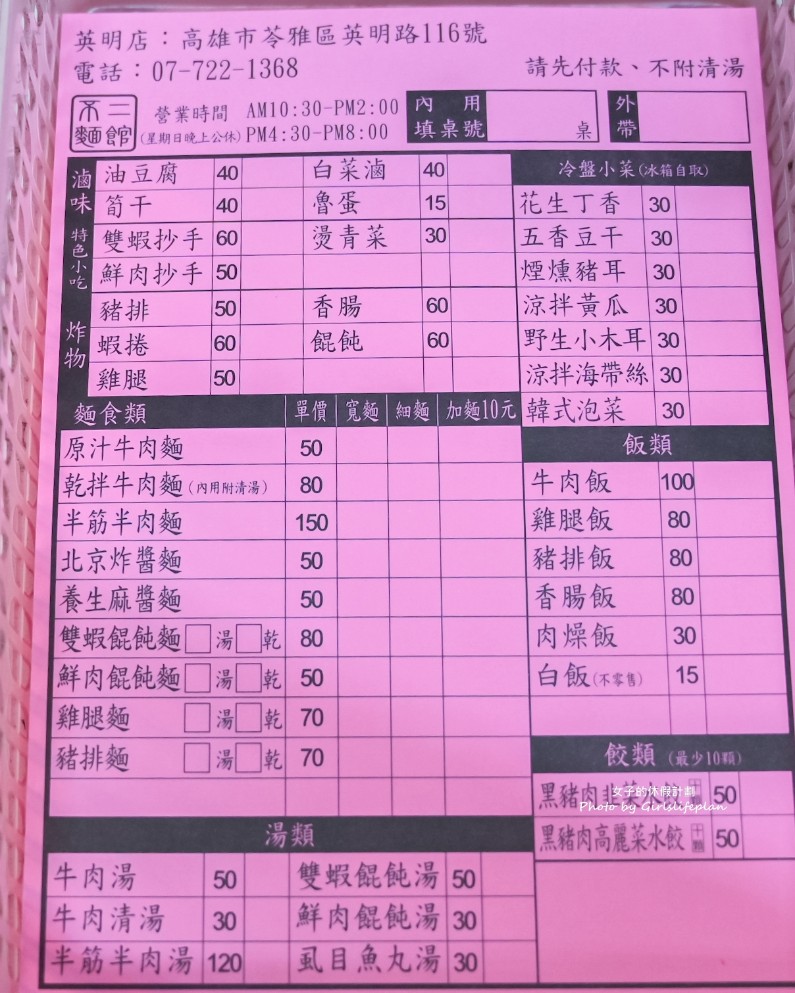 英明店：高雄市苓雅區英明路116號
電話：07-722-1368
請先付款、不附清湯
不二麵館
營業時間 AM10:30-PM2:00
(星期日晚上公休) PM4:30-PM8:00
內用 填桌號 桌
外帶
滷味
油豆腐 40 白菜滷 40
筍干 40 魯蛋 15
特色小吃
雙蝦抄手 60 燙青菜 30
鮮肉抄手 50
炸物
豬排 50 香腸 60
蝦捲 60 餛飩 60
雞腿 50
冷盤小菜(冰箱自取)
花生丁香 30
五香豆干 30
煙燻豬耳 30
涼拌黃瓜 30
野生小木耳 30
涼拌海帶絲 30
韓式泡菜 30
麵食類 單價 寬麵 細麵 加麵10元
原汁牛肉麵 50
乾拌牛肉麵(內用附清湯) 80
半筋半肉麵 150
北京炸醬麵 50
養生麻醬麵 50
雙蝦餛飩麵 湯 乾 80
鮮肉餛飩麵 湯 乾 50
雞腿麵 湯 乾 70
豬排麵 湯 乾 70
飯類
牛肉飯 100
雞腿飯 80
豬排飯 80
香腸飯 80
肉燥飯 30
白飯(不零售) 15
餃類 (最少10顆)
黑豬肉韭菜水餃 50
黑豬肉高麗菜水餃 十顆 50
女子的休假計劃
Photo by Girlslifeplan
湯類
牛肉湯 50 雙蝦餛飩湯 50
牛肉清湯 30 鮮肉餛飩湯 30
半筋半肉湯 120 虱目魚丸湯 30